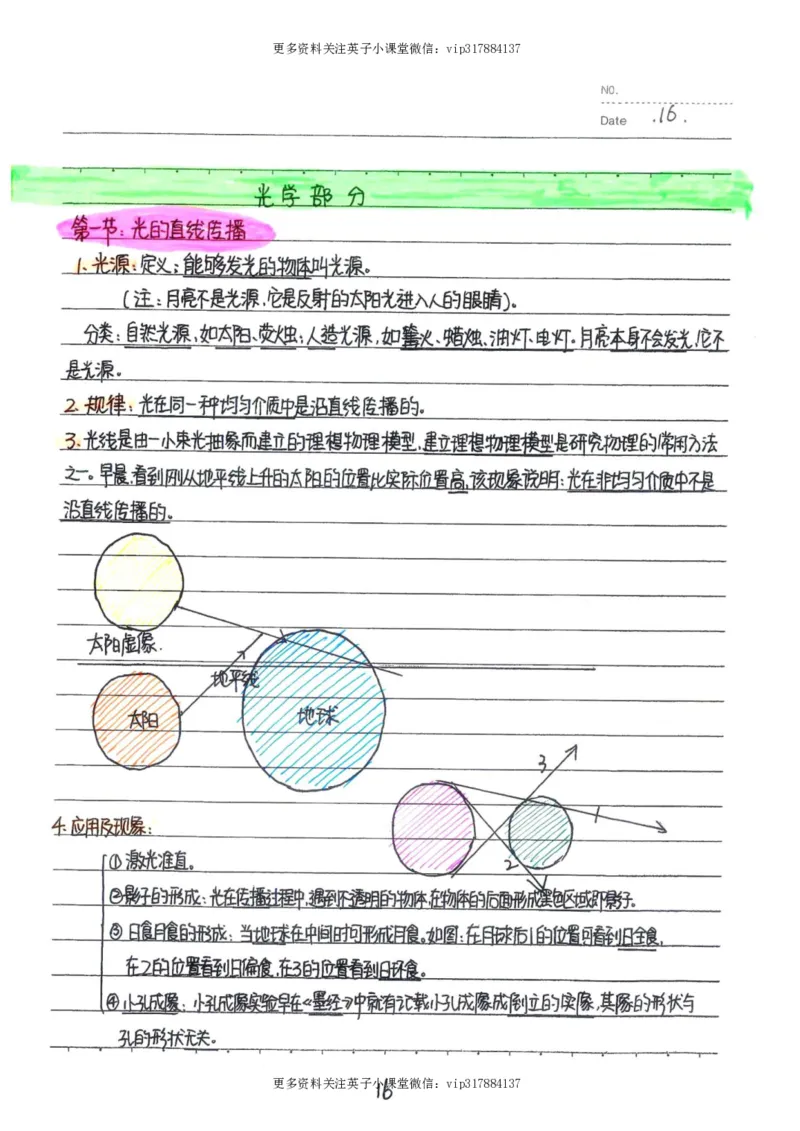 更多资料关注英子小课堂微信：vip317884137
NO.
Date .16.
光学部分
第一节：光的直线传播
1、光源：定义：能够发光的物体叫光源。
（注：月亮不是光源，它是反射的太阳光进入人的眼睛）。
分类：自然光源，如太阳、萤火虫；人造光源，如篝火、蜡烛、油灯、电灯。月亮本身不会发光，它不
是光源。
2. 规律：光在同一种均匀介质中是沿直线传播的。
3. 光线是由一小束光抽象而建立的理想物理模型，建立理想物理模型是研究物理的常用方法
之一。早晨，看到刚从地平线上升的太阳的位置比实际位置高，该现象说明：光在非均匀介质中不是
沿直线传播的。
太阳虚像.
地平线
太阳
地球
3
1
2
4. 应用及现象：
① 激光准直。
②影子的形成：光在传播过程中，遇到不透明的物体，在物体的后面形成黑色区域即影子。
③ 日食月食的形成：当地球在中间时可形成月食。如图：在月球后1的位置可看到日全食，
在2的位置看到日偏食，在3的位置看到日环食。
④小孔成像：小孔成像实验早在《墨经》中就有记载小孔成像成倒立的实像，其像的形状与
孔的形状无关。
更多资料关注英子小课堂微信：vip317884137
16